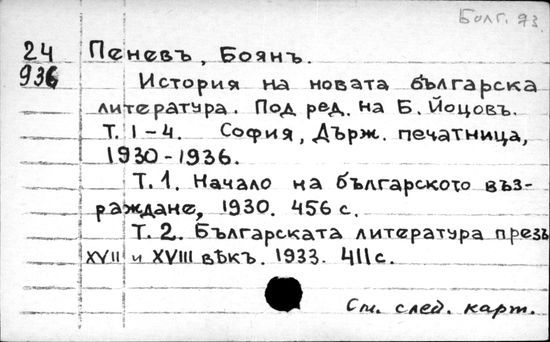 Болг. яз.
24 Пеневъ, Боянъ.
936 История на новата българска
литература. Под ред. на Б. Йоцовъ.
Т. 1-4. София, Държ. печатница,
1930-1936.
Т. 1. Начало на българското въз-
раждане, 1930. 456 с.
Т. 2. Българската литература презъ
XVII и XVIII вѣкъ. 1933. 411 с.
См. след. карт.